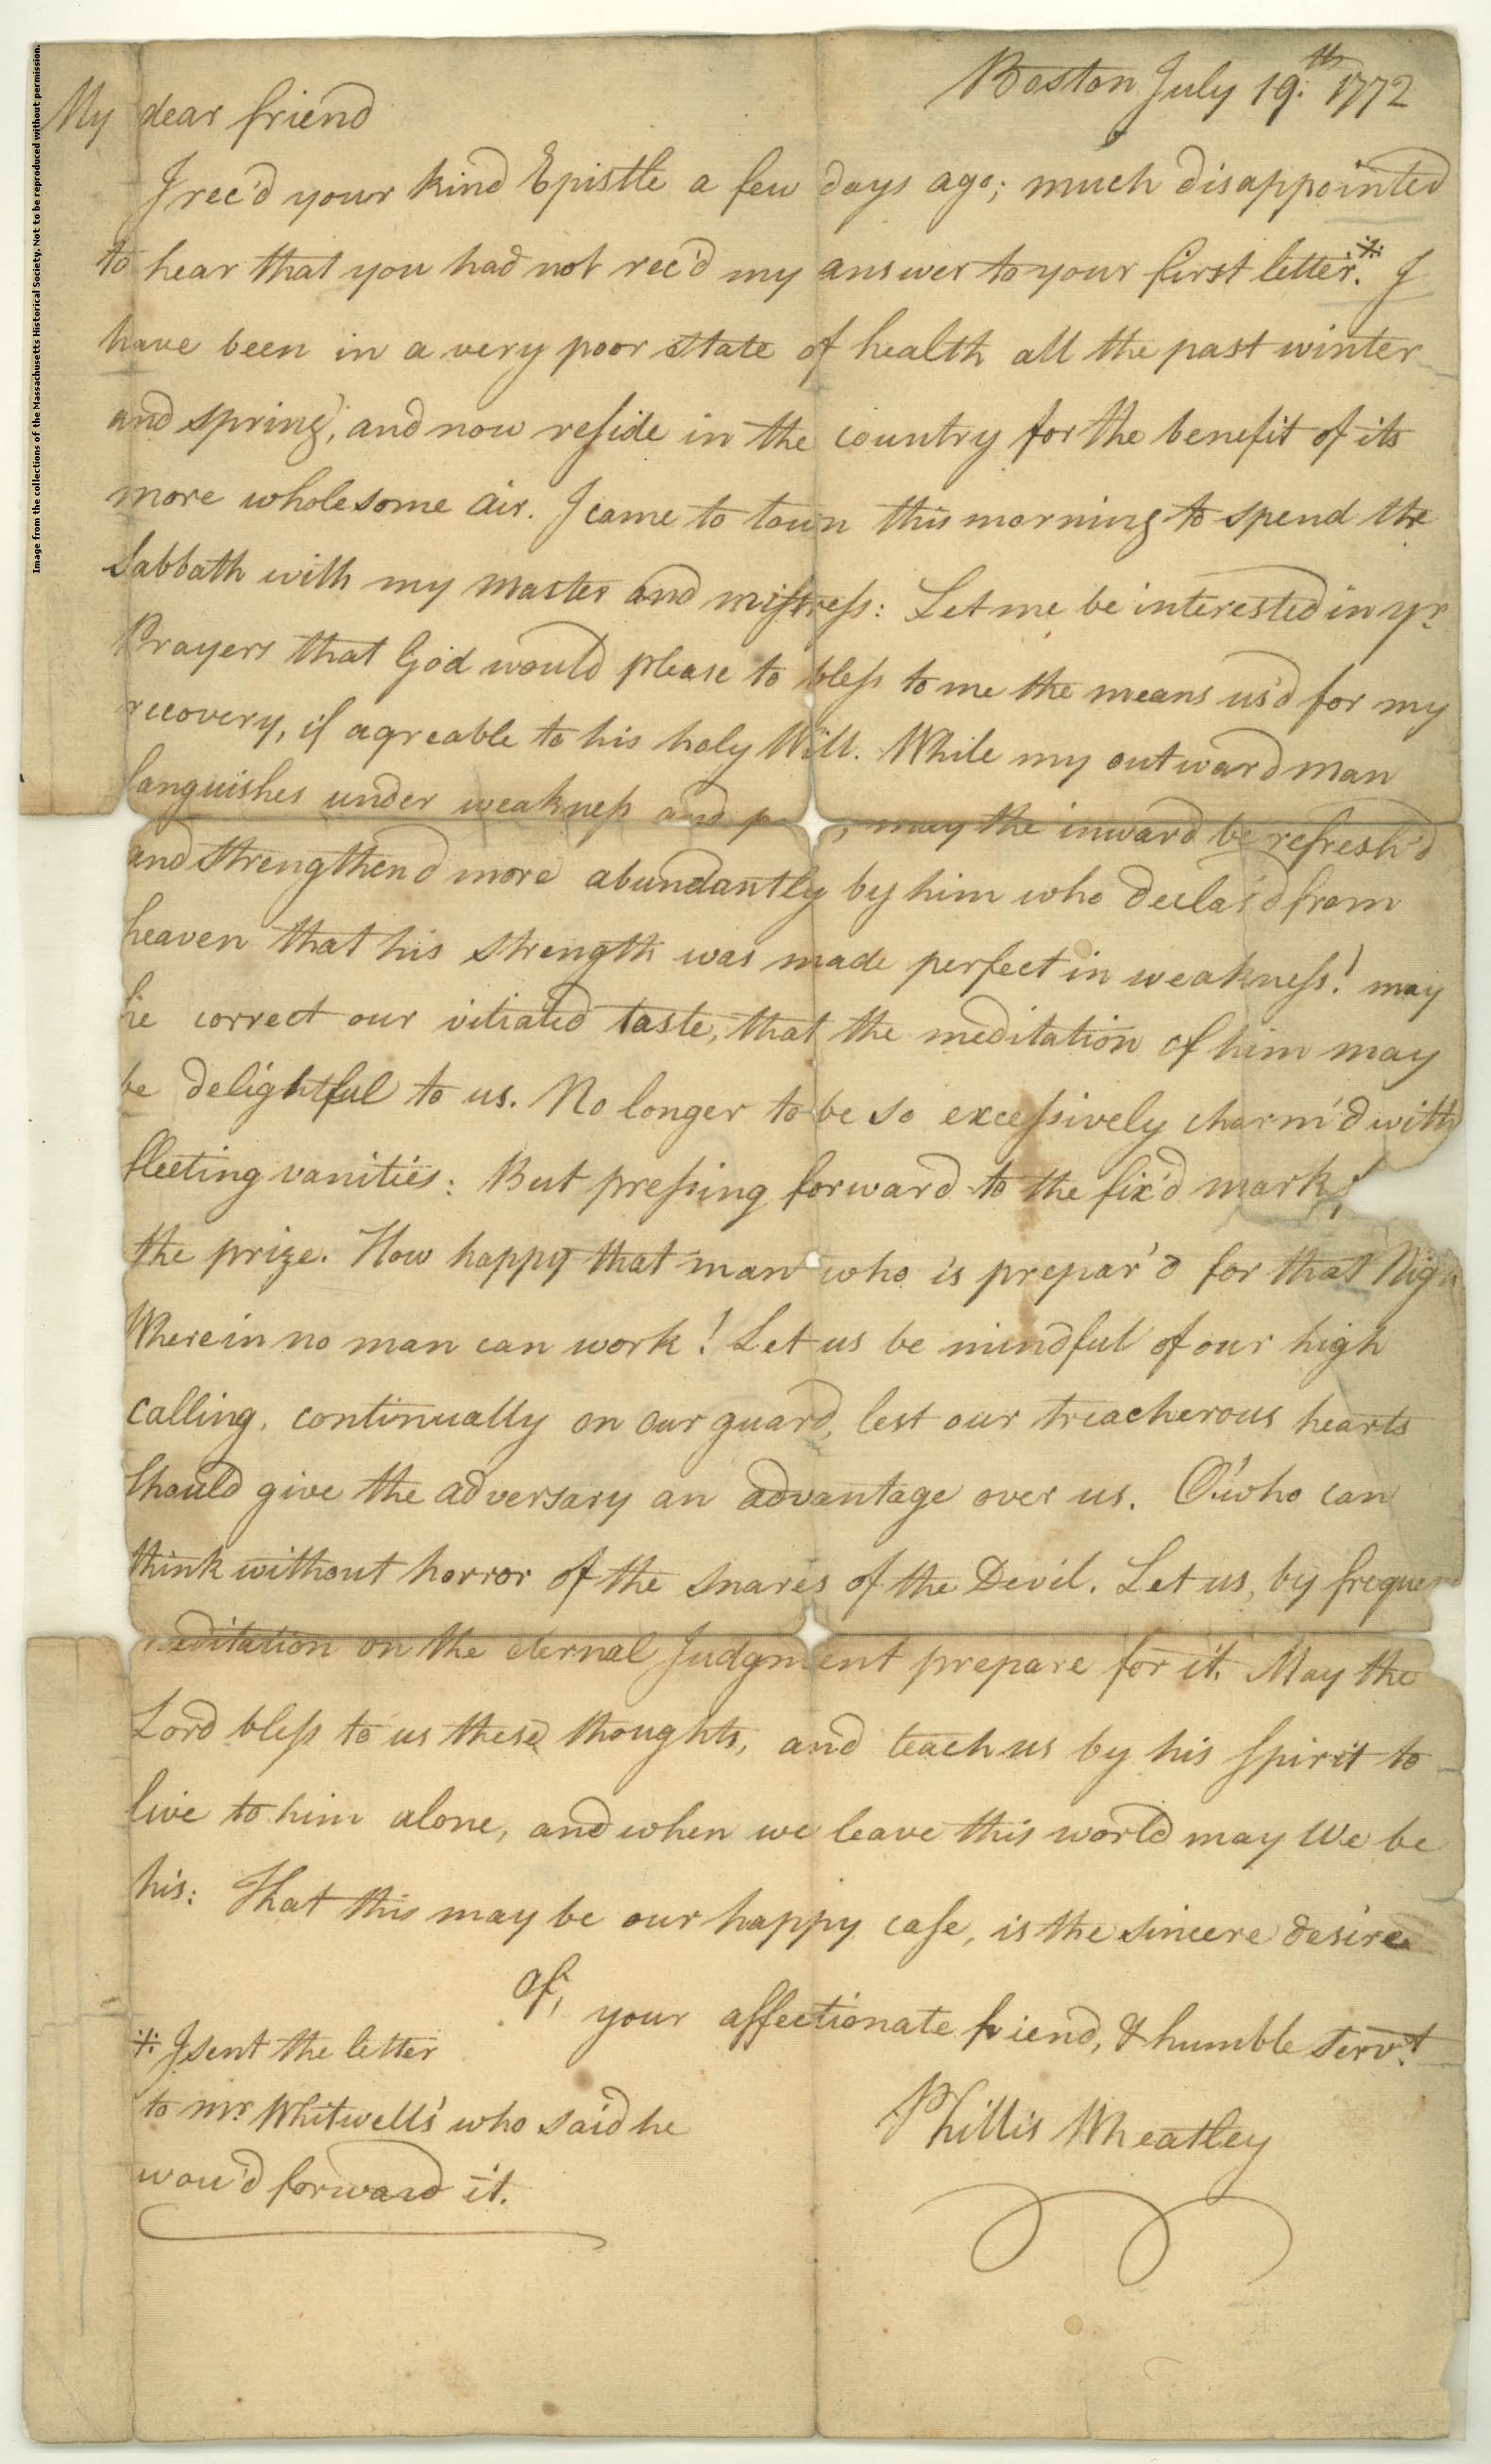 Image from the collections of the Massachusetts Historical Society. Not to be reproduced without permission.
Boston July 19:th 1772
My dear friend
I rec'd your kind Epistle a few days ago; much disappointed
to hear that you had not rec'd my answer to your first letter.* I
have been in a very poor state of health all the past winter
and spring, and now reside in the country for the benefit of its
more wholesome air. I came to town this morning to spend the
Sabbath with my master and mistress: Let me be interested in yr.
Prayers that God would please to bless to me the means us'd for my
recovery, if agreable to his holy Will. While my outward man
languishes under weakness and , may the inward be refresh'd
and strengthend more abundantly by him who declar'd from
heaven that his strength was made perfect in weakness! may
he correct our vitiated taste, that the meditation of him may
be delightful to us. No longer to be so excessively charm'd with
fleeting vanities: But pressing forward to the fix'd mark
the prize. How happy that man who is prepar'd for that Nig
Wherein no man can work! Let us be mindful of our high
calling, continually on our guard, lest our treacherous hearts
Should give the adversary an advantage over us. O! who can
think without horror of the snares of the Devil. Let us, by freque
meditation on the eternal Judgment prepare for it. May the
Lord bless to us these thoughts, and teach us by his Spirit to
live to him alone, and when we leave this world may We be
his: That this may be our happy case, is the sincere desire
of, your affectionate friend, & humble serv.t
Phillis Wheatley
* I sent the letter
to mr. Whitwell's who said he
wou'd forward it.